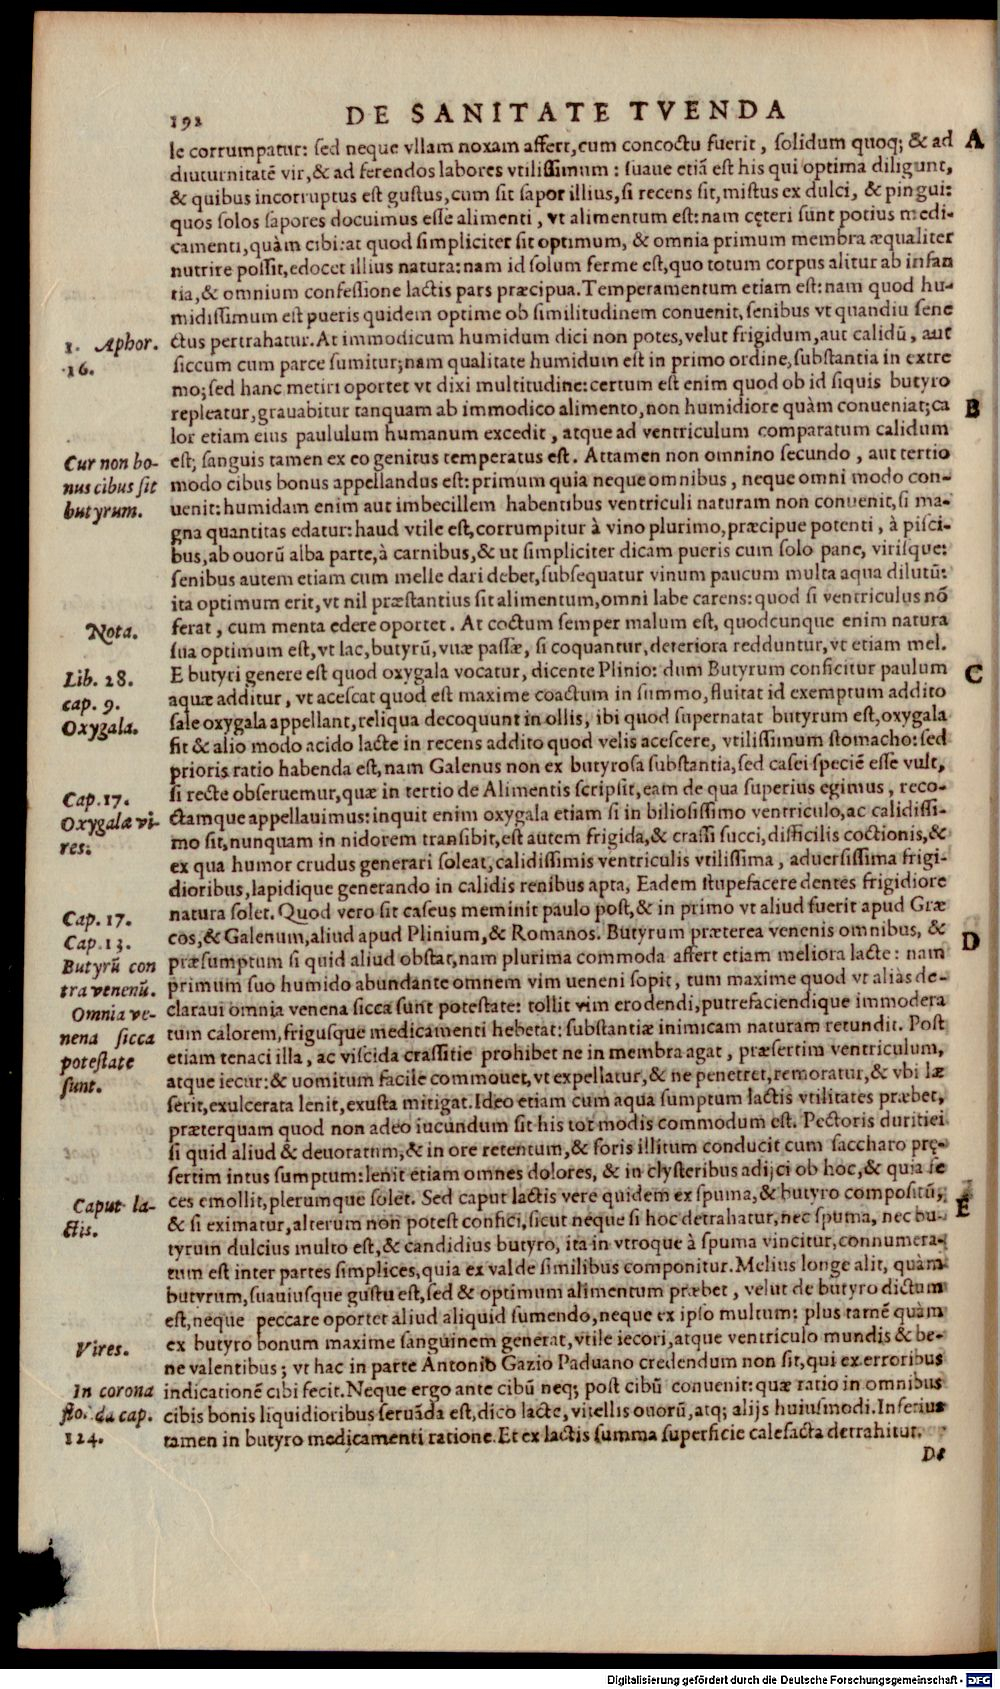 192 DE SANITATE TVENDA
le corrumpatur: sed neque vllam noxam affert, cum concoctu fuerit, solidum quoq; & ad A
diuturnitatē vir, & ad ferendos labores vtilissimum: suaue etiā est his qui optima diligunt,
& quibus incorruptus est gustus, cum sit sapor illius, si recens sit, mistus ex dulci, & pingui:
quos solos sapores docuimus esse alimenti, vt alimentum est: nam cęteri sunt potius medi-
camenti, quàm cibi: at quod simpliciter sit optimum, & omnia primum membra æqualiter
nutrire possit, edocet illius natura: nam id solum ferme est, quo totum corpus alitur ab infan
tia, & omnium confessione lactis pars præcipua. Temperamentum etiam est: nam quod hu-
midissimum est pueris quidem optime ob similitudinem conuenit, senibus vt quandiu sene
1. Aphor. ctus pertrahatur. At immodicum humidum dici non potes, velut frigidum, aut calidū, aut
16. siccum cum parce sumitur; nam qualitate humidum est in primo ordine, substantia in extre
mo; sed hanc metiri oportet vt dixi multitudine: certum est enim quod ob id siquis butyro
repleatur, grauabitur tanquam ab immodico alimento, non humidiore quàm conueniat; ca B
lor etiam eius paululum humanum excedit, atque ad ventriculum comparatum calidum
Cur non bo- est; sanguis tamen ex eo genitus temperatus est. Attamen non omnino secundo, aut tertio
nus cibus sit modo cibus bonus appellandus est: primum quia neque omnibus, neque omni modo con-
butyrum. uenit: humidam enim aut imbecillem habentibus ventriculi naturam non conuenit, si ma-
gna quantitas edatur: haud vtile est, corrumpitur à vino plurimo, præcipue potenti, à pisci-
bus, ab ouorū alba parte, à carnibus, & ut simpliciter dicam pueris cum solo pane, virisque:
senibus autem etiam cum melle dari debet, subsequatur vinum paucum multa aqua dilutū:
ita optimum erit, vt nil præstantius sit alimentum, omni labe carens: quod si ventriculus nō
Nota. ferat, cum menta edere oportet. At coctum semper malum est, quodcunque enim natura
sua optimum est, vt lac, butyrū, vuæ passæ, si coquantur, deteriora redduntur, vt etiam mel.
Lib. 28. E butyri genere est quod oxygala vocatur, dicente Plinio: dum Butyrum conficitur paulum C
cap. 9. aquæ additur, vt acescat quod est maxime coactum in summo, fluitat id exemptum addito
Oxygala. sale oxygala appellant, reliqua decoquunt in ollis, ibi quod supernatat butyrum est, oxygala
fit & alio modo acido lacte in recens addito quod velis acescere, vtilissimum stomacho: sed
prioris ratio habenda est, nam Galenus non ex butyrosa substantia, sed casei speciē esse vult,
Cap. 17. si recte obseruemur, quæ in tertio de Alimentis scripsit, eam de qua superius egimus, reco-
Oxygalæ vi- ctamque appellauimus: inquit enim oxygala etiam si in biliosissimo ventriculo, ac calidissi-
res. mo sit, nunquam in nidorem transibit, est autem frigida, & crassi succi, difficilis coctionis, &
ex qua humor crudus generari soleat, calidissimis ventriculis vtilissima, aduersissima frigi-
dioribus, lapidique generando in calidis renibus apta, Eadem stupefacere dentes frigidiore
Cap. 17. natura solet. Quod vero sit caseus meminit paulo post, & in primo vt aliud fuerit apud Græ
Cap. 13. cos, & Galenum, aliud apud Plinium, & Romanos. Butyrum præterea venenis omnibus, & D
Butyrū con præsumptum si quid aliud obstat, nam plurima commoda affert etiam meliora lacte: nam
tra venenū. primum suo humido abundante omnem vim ueneni sopit, tum maxime quod vt aliàs de-
Omnia ve- claraui omnia venena sicca sunt potestate: tollit vim erodendi, putrefaciendique immodera
nena sicca tum calorem, frigusque medicamenti hebetat: substantiæ inimicam naturam retundit. Post
potestate etiam tenaci illa, ac viscida crassitie prohibet ne in membra agat, præsertim ventriculum,
sunt. atque iecur: & uomitum facile commouet, vt expellatur, & ne penetret, remoratur, & vbi læ
serit, exulcerata lenit, exusta mitigat. Ideo etiam cum aqua sumptum lactis vtilitates præbet,
præterquam quod non adeo iucundum sit his tot modis commodum est. Pectoris duritiei
si quid aliud & deuoratum, & in ore retentum, & foris illitum conducit cum saccharo prę-
sertim intus sumptum: lenit etiam omnes dolores, & in clysteribus adijci ob hoc, & quia fe
Caput la- ces emollit, plerumque solet. Sed caput lactis vere quidem ex spuma, & butyro compositū, E
ctis. & si eximatur, alterum non potest confici, sicut neque si hoc detrahatur, nec spuma, nec bu-
tyrum dulcius multo est, & candidius butyro, ita in vtroque à spuma vincitur, connumera-
tum est inter partes simplices, quia ex valde similibus componitur. Melius longe alit, quàm
butyrum, suauiusque gustu est, sed & optimum alimentum præbet, velut de butyro dictum
est, neque peccare oportet aliud aliquid sumendo, neque ex ipso multum: plus tamē quàm
Vires. ex butyro bonum maxime sanguinem generat, vtile iecori, atque ventriculo mundis & be-
ne valentibus; vt hac in parte Antonio Gazio Paduano credendum non sit, qui ex erroribus
In corona indicationē cibi fecit. Neque ergo ante cibū neq; post cibū conuenit: quæ ratio in omnibus
flo. da cap. cibis bonis liquidioribus seruāda est, dico lacte, vitellis ouorū, atq; alijs huiusmodi. Inferius
124. tamen in butyro medicamenti ratione. Et ex lactis summa superficie calefacta detrahitur.
De
Digitalisierung gefördert durch die Deutsche Forschungsgemeinschaft - DFG